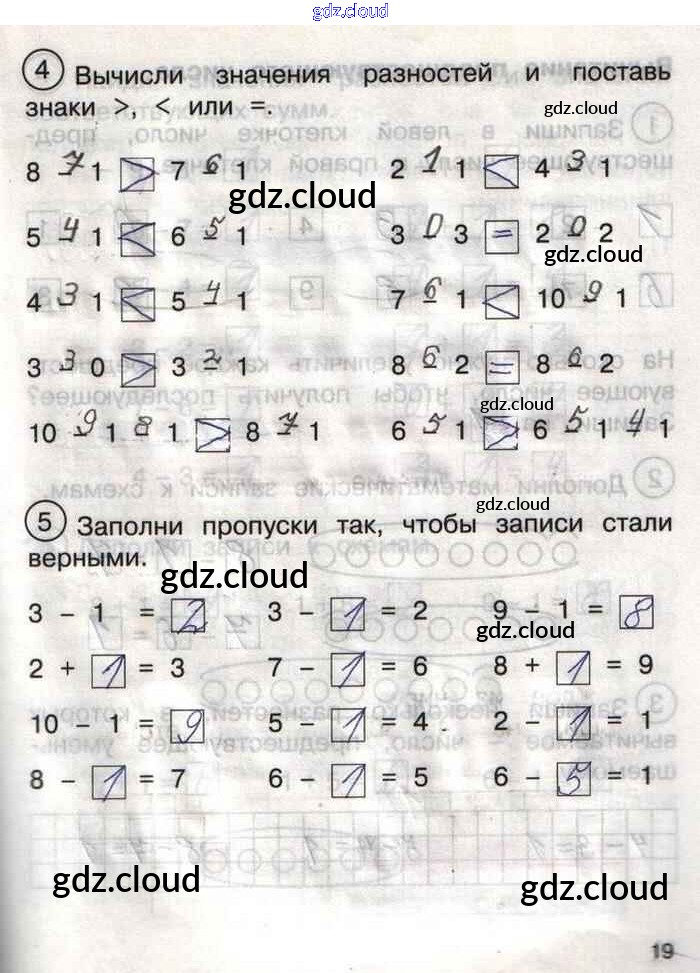 gdz.cloud
4 Вычисли значения разностей и поставь
знаки >, < или =.
gdz.cloud
8 – 1 > 7 – 1 2 – 1 < 4 – 1
7 6 1 3
gdz.cloud
5 – 1 < 6 – 1 3 – 3 = 2 – 2
4 5 0 0
gdz.cloud
4 – 1 < 5 – 1 7 – 1 < 10 – 1
3 4 6 9
3 – 0 > 3 – 1 8 – 2 = 8 – 2
3 2 6 6
gdz.cloud
10 – 1 – 1 > 8 – 1 6 – 1 > 6 – 1 – 1
9 8 7 5 5 4
gdz.cloud
5 Заполни пропуски так, чтобы записи стали
верными.
gdz.cloud
3 – 1 = 2 3 – 1 = 2 9 – 1 = 8
gdz.cloud
2 + 1 = 3 7 – 1 = 6 8 + 1 = 9
10 – 1 = 9 5 – 1 = 4 2 – 1 = 1
8 – 1 = 7 6 – 1 = 5 6 – 5 = 1
gdz.cloud
gdz.cloud
19